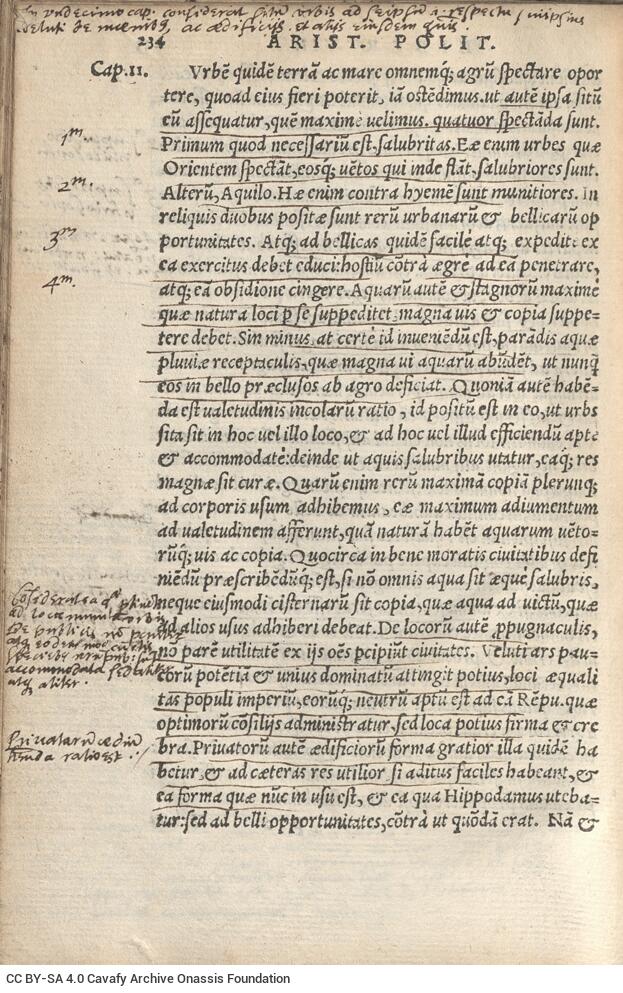 In undecimo cap. considerat situm urbis ad seipsum
ac ædificijs
234 ARIST. POLIT.
Cap.11. Vrbẽ quidẽ terrã ac mare omnemq; agrũ spectare opor
tere, quoad eius fieri poterit, iã ostẽdimus.ut autẽ ipsa sitũ
eũ assequatur, quẽ maximè uelimus. quatuor spectãda sunt.
1m. Primum quod necessariũ est, salubritas.Eæ enum urbes quæ
Orientem spectãt, eosq; uẽtos qui inde flãt, salubriores sunt.
2m. Alterũ, Aquilo. Hæ enim contra hyemẽ sunt munitiores. In
reliquis duobus positæ sunt rerũ urbanarũ & bellicarũ op
3m portunitates. Atq; ad bellicas quidẽ facilè atq; expeditè ex
ea exercitus debet educi: hostiũ cõtrà ægrè ad eã penetrare,
4m. atq; eã obsidione cingere. Aquarũ autẽ & stagnorũ maximè
quæ natura loci p se suppeditet, magna uis & copia suppe=
tere debet. Sin minus, at certè id inueniẽdũ est, parãdis aquæ
pluuiæ receptaculis, quæ magna ui aquarũ abũdẽt, ut nunq̃
eos in bello præclusos ab agro deficiat. Quoniã autẽ habẽ=
da est ualetudinis incolarũ ratio, id positũ est in eo, ut urbs
sita sit in hoc uel illo loco, & ad hoc uel illud efficiendũ aptè
& accommodatè: deinde ut aquis salubribus utatur, eaq; res
magnæ sit curæ. Quarũ enim rerũ maximã copiã plerunq;
ad corporis usum adhibemus, eæ maximum adiumentum
ad ualetudinem afferunt, quã naturã habẽt aquarum uẽto=
rũq; uis ac copia. Quocirca in bene moratis ciuitatibus defi
niẽdũ præscribẽdũq; est, si nõ omnis aqua sit æquè salubris,
neque eiusmodi cisternarũ sit copia, quæ aqua ad victũ, quæ
ad alios usus adhiberi debeat. De locorũ autẽ ꝓpugnaculis,
nõ parẽ utilitatẽ ex ijs oẽs ꝑcipiũt ciuitates. Velut i ars pau=
corũ potẽtiã & unius dominatũ attingit potius, loci æquali
tas populi imperiũ, eorũq; neutrũ aptũ est ad eã Rẽpu. quæ
optimorũ cõsilijs administratur, sed loca potius firma & cre
bra. Priuatorũ autẽ ædificiorũ forma gratior illa quidẽ ha
betur, & ad cæteras res utilior si aditus faciles habeant, &
ea forma quæ nũc in usu est, & ea qua Hippodamus uteba=
tur: sed ad belli opportunitates, cõtrà ut quõdã erat. Nã &
Priuatarũ ædiũ
ratio est
CC BY-SA 4.0 Cavafy Archive Onassis Foundation